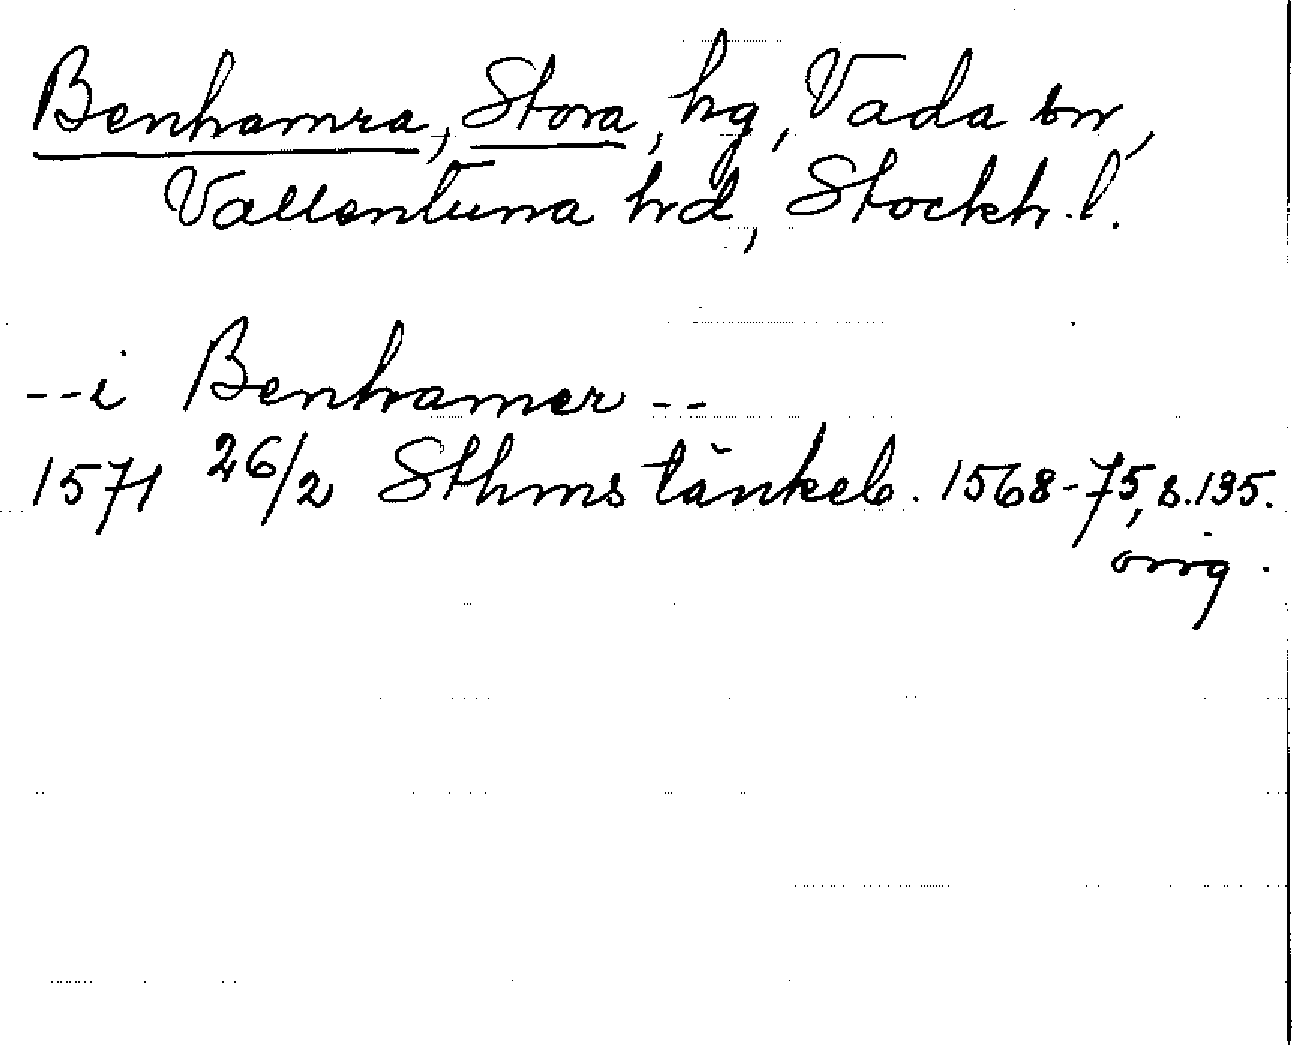 Benhamra, Stora, hg, Vada sn,
Vallentuna hd, Stockh. l.
-- i Benhamer --
1571 26/2 Sthms tänkeb. 1568-75, s. 135.
orig.